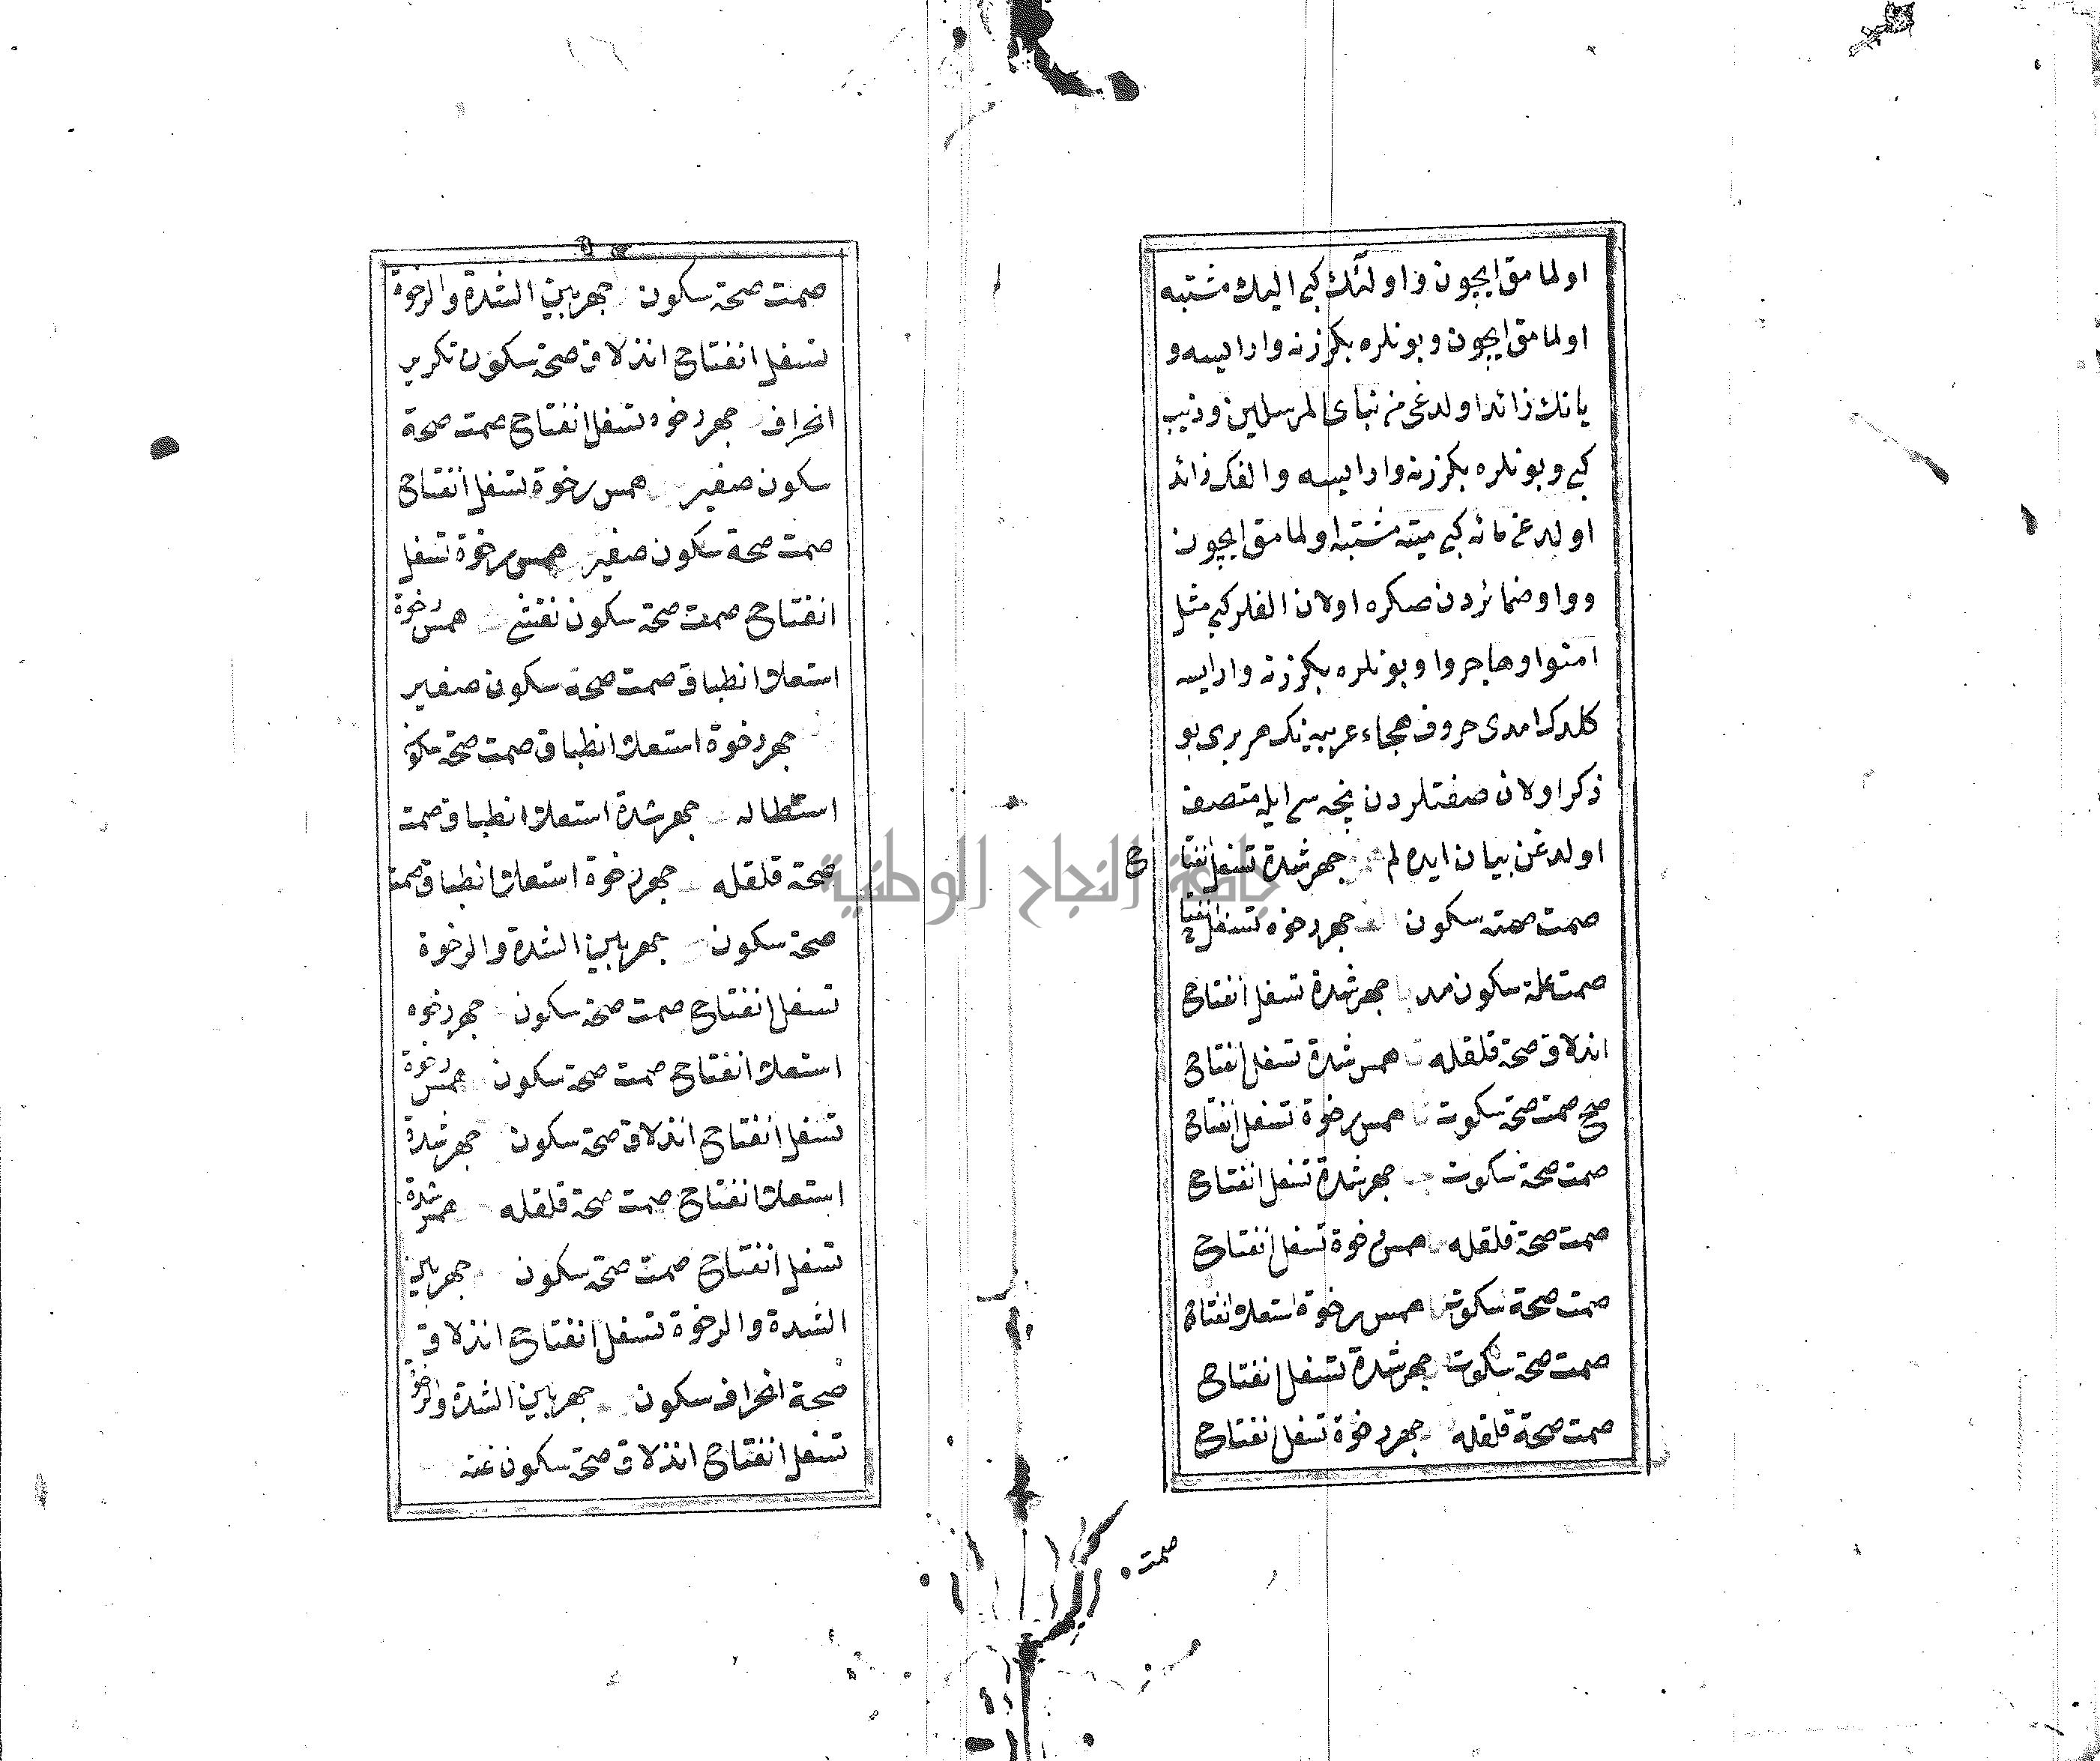 اولمامق ايچون و اولئك كبى اليك مشتبه
اولمامق ايچون و بونلره بكزرنه وارايسه و
يانك زائد اولدغى من نباى المرسلين و
كبى و بونلره بكزرنه وارايسه و الفك زائد
اولدغى مائه كبى ميته مشتبه اولمامق ايچون
و واو ضمائردن صكره اولان الفلر كبى مثل
امنوا و هاجروا و بونلره بكزرنه وارايسه
كلدك امدى حروف هجاء عربيه نك هر برى بو
ذكر اولان صفتلردن نچه سى ايله متصف
اولدغن بيان ايده لم جهر شدة تسفل انفتاح
صمت صحته سكون جهر رخوه تسفل انفتاح
صمت علة سكون مد جهر شدة تسفل انفتاح
انذلاق صحة قلقله همس شدة تسفل انفتاح
صح صمت صحة سكوت همس رخوة تسفل انفتاح
صمت صحة سكوت جهر شدة تسفل انفتاح
صمت صحة قلقله همس رخوة تسفل انفتاح
صمت صحة سكوت همس رخوة استعلا انفتاح
صمت صحة سكوت جهر شدة تسفل انفتاح
صمت صحة قلقله جهر رخوة تسفل انفتاح
صمت
صمت صحة سكون جهر بين الشدة والرخوة
تسفل انفتاح انذلاق صحة سكون تكرير
انحراف جهر رخوه تسفل انفتاح صمت صحة
سكون صفير همس رخوة تسفل انفتاح
صمت صحة سكون صفير همس رخوة تسفل
انفتاح صمت صحة سكون تفشى همس رخوة
استعلا انطباق صمت صحة سكون صفير
جهر رخوة استعلا انطباق صمت صحة سكون
استطاله جهر شدة استعلا انطباق صمت
صحة قلقله جهر رخوة استعلا انطباق صمت
صحة سكون جهر بين الشدة والرخوة
تسفل انفتاح صمت صحة سكون جهر رخوه
استعلا انفتاح صمت صحة سكون همس رخوة
تسفل انفتاح انذلاق صحة سكون جهر شدة
استعلا انفتاح صمت صحة قلقله همس شدة
تسفل انفتاح صمت صحة سكون جهر بين
الشدة والرخوة تسفل انفتاح انذلاق
صحة انحراف سكون جهر بين الشدة والرخوة
تسفل انفتاح انذلاق صحة سكون غنه
جامعة النجاح الوطنية